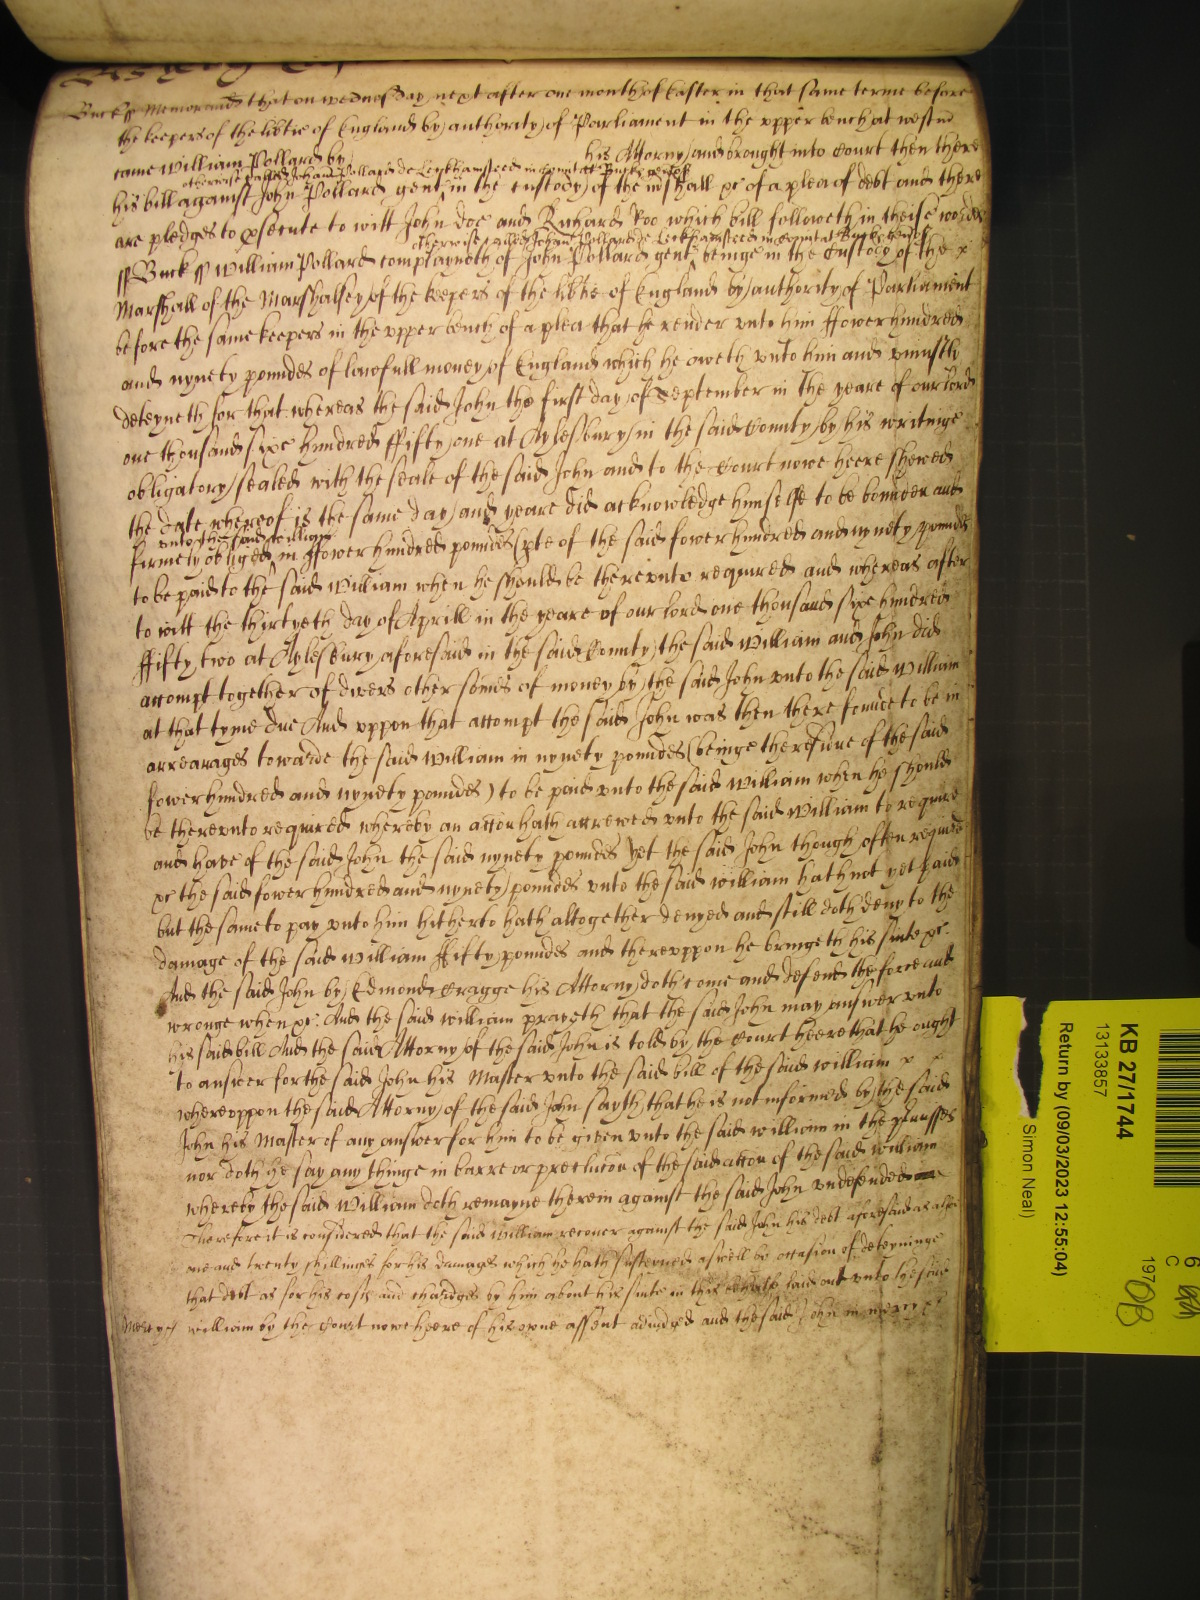 Buck ss Memorand that on wednesday next after one month of Easter in that same terme before
the keepers of the libtie of England by authority of Parliament in the upper bench at westm
came William Pollard by his Attorny and brought into Court then there
otherwise called Johan Pollard de Leckhamsteed in Comit Buck gent
his bill against John Pollard gent in the custody of the mshall xc of a plea of debt and there
are pledges to prsecute to witt John Doe and Richard Roo which bill followeth in theise wordes
otherwise called Johan Pollard de Leckhamsteed in Comitat Buck gent
ss Buck ss William Pollard complayneth of John Pollard gent beinge in the Custody of the x
Marshall of the Marshalsey of the keepers of the libtie of England by authority of Parliament
before the same keepers in the upper bench of a plea that he render unto him ffower hundred
and nynety poundes of lawfull money of England which he oweth unto him and uniustly
deteyneth for that whereas the said John the first day of September in the yeare of our lord
one thousand sixe hundred ffifty one at Aylesbury in the said County by his writinge
obligatory sealed with the seale of the said John and to the Court nowe heere shewed
the date whereof is the same day and yeare did acknowledge himselfe to be bounden and
unto the said William
firmely obliged in ffower hundred poundes pte of the said fower hundred and nynety poundes
to be paid to the said William when he should be thereunto required and whereas after
to witt the thirtyeth day of Aprill in the yeare of our lord one thousand sixe hundred
ffifty two at Aylesbury aforesaid in the said County the said William and John did
accompt together of divers other somes of money by the said John unto the said William
at that tyme due And uppon that accompt the said John was then there founde to be in
arrearages towarde the said William in nynety poundes (beinge the residue of the said
fower hundred and nynety poundes) to be paid unto the said William when he should
be thereunto required whereby an accon hath accrewed unto the said William to require
and have of the said John the said nynety poundes Yet the said John though often required
xc the said fower hundred and nynety poundes unto the said William hath not yet paid
but the same to pay unto him hitherto hath altogether denyed and still doth deny to the
damage of the said William ffifty poundes and thereuppon he bringeth his suite xc
And the said John by Edmond Cragge his Attorny doth come and defend the force and
wronge when xc. And the said William prayeth that the said John may answer unto
his said bill And the said Attorny of the said John is told by the Court heere that he ought
to answer for the said John his Master unto the said bill of the said William x x
whereuppon the said Attorny of the said John sayth that he is not informed by the said
John his Master of any answer for him to be given unto the said William in the pmisses
nor doth he say any thinge in barre or preclucon of the said accon of the said William
whereby the said William doth remayne therein against the said John undefended
Therefore it is considered that the said William recover against the said John his debt aforesaid as also
one and twenty shillinges for his damages which he hath susteyned aswell by occasion of deteyninge
that debt as for his costs and chardges by him about his suite in this behalfe laid out unto the said
Mercy William by the Court nowe heere of his owne assent adiudged and the said John in mercy xc
KB 27/1744
13133857
Return by (09/03/2023 12:55:04)
Simon Neal)
6
C
197